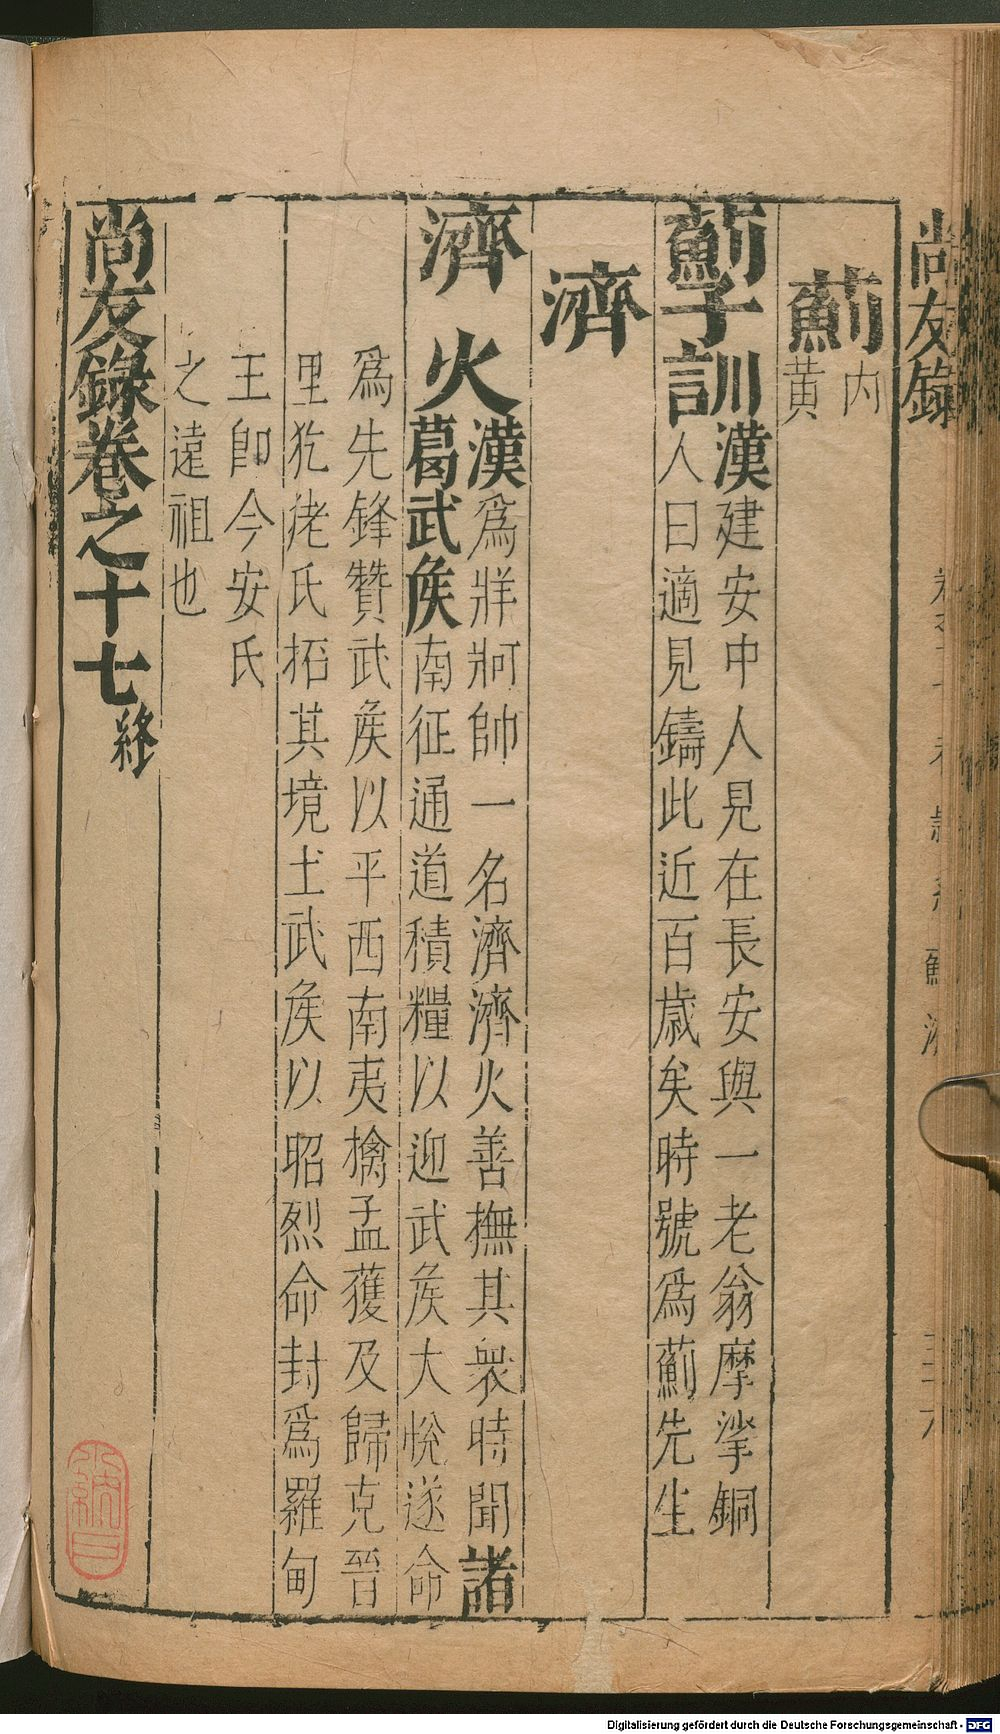 尚友錄
薊 內黃
薊子訓 漢建安中人見在長安與一老翁摩挲銅
人曰適見鑄此近百歲矣時號爲薊先生
濟
濟火 漢爲牂牁帥一名濟濟火善撫其衆時聞諸
葛武矦南征通道積糧以迎武矦大悅遂命
爲先鋒贊武矦以平西南夷擒孟獲及歸克晉
里犵狫氏拓其境土武矦以昭烈命封爲羅甸
王卽今安氏
之遠祖也
尚友錄卷之十七終
Digitalisierung gefördert durch die Deutsche Forschungsgemeinschaft - DFG